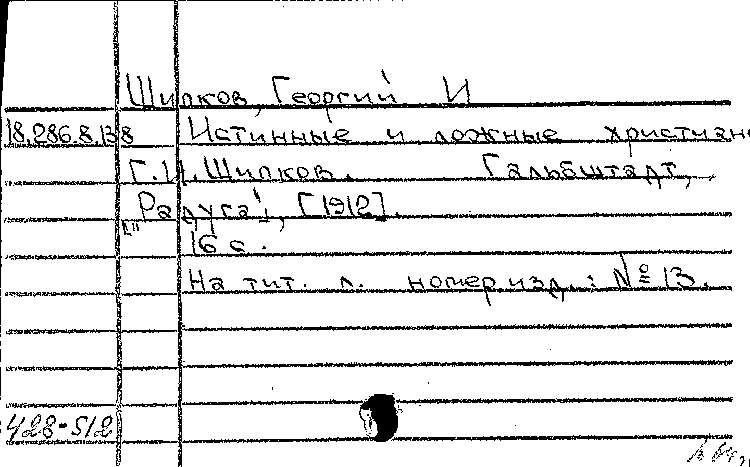 Шипков, Георгий И
18.286.8.138 Истинные и ложные христиане
Г.И.Шипков. Гальбштадт,
„Радуга“, [1912].
16 с.
На тит. л. номер изд.: № 13.
428-512